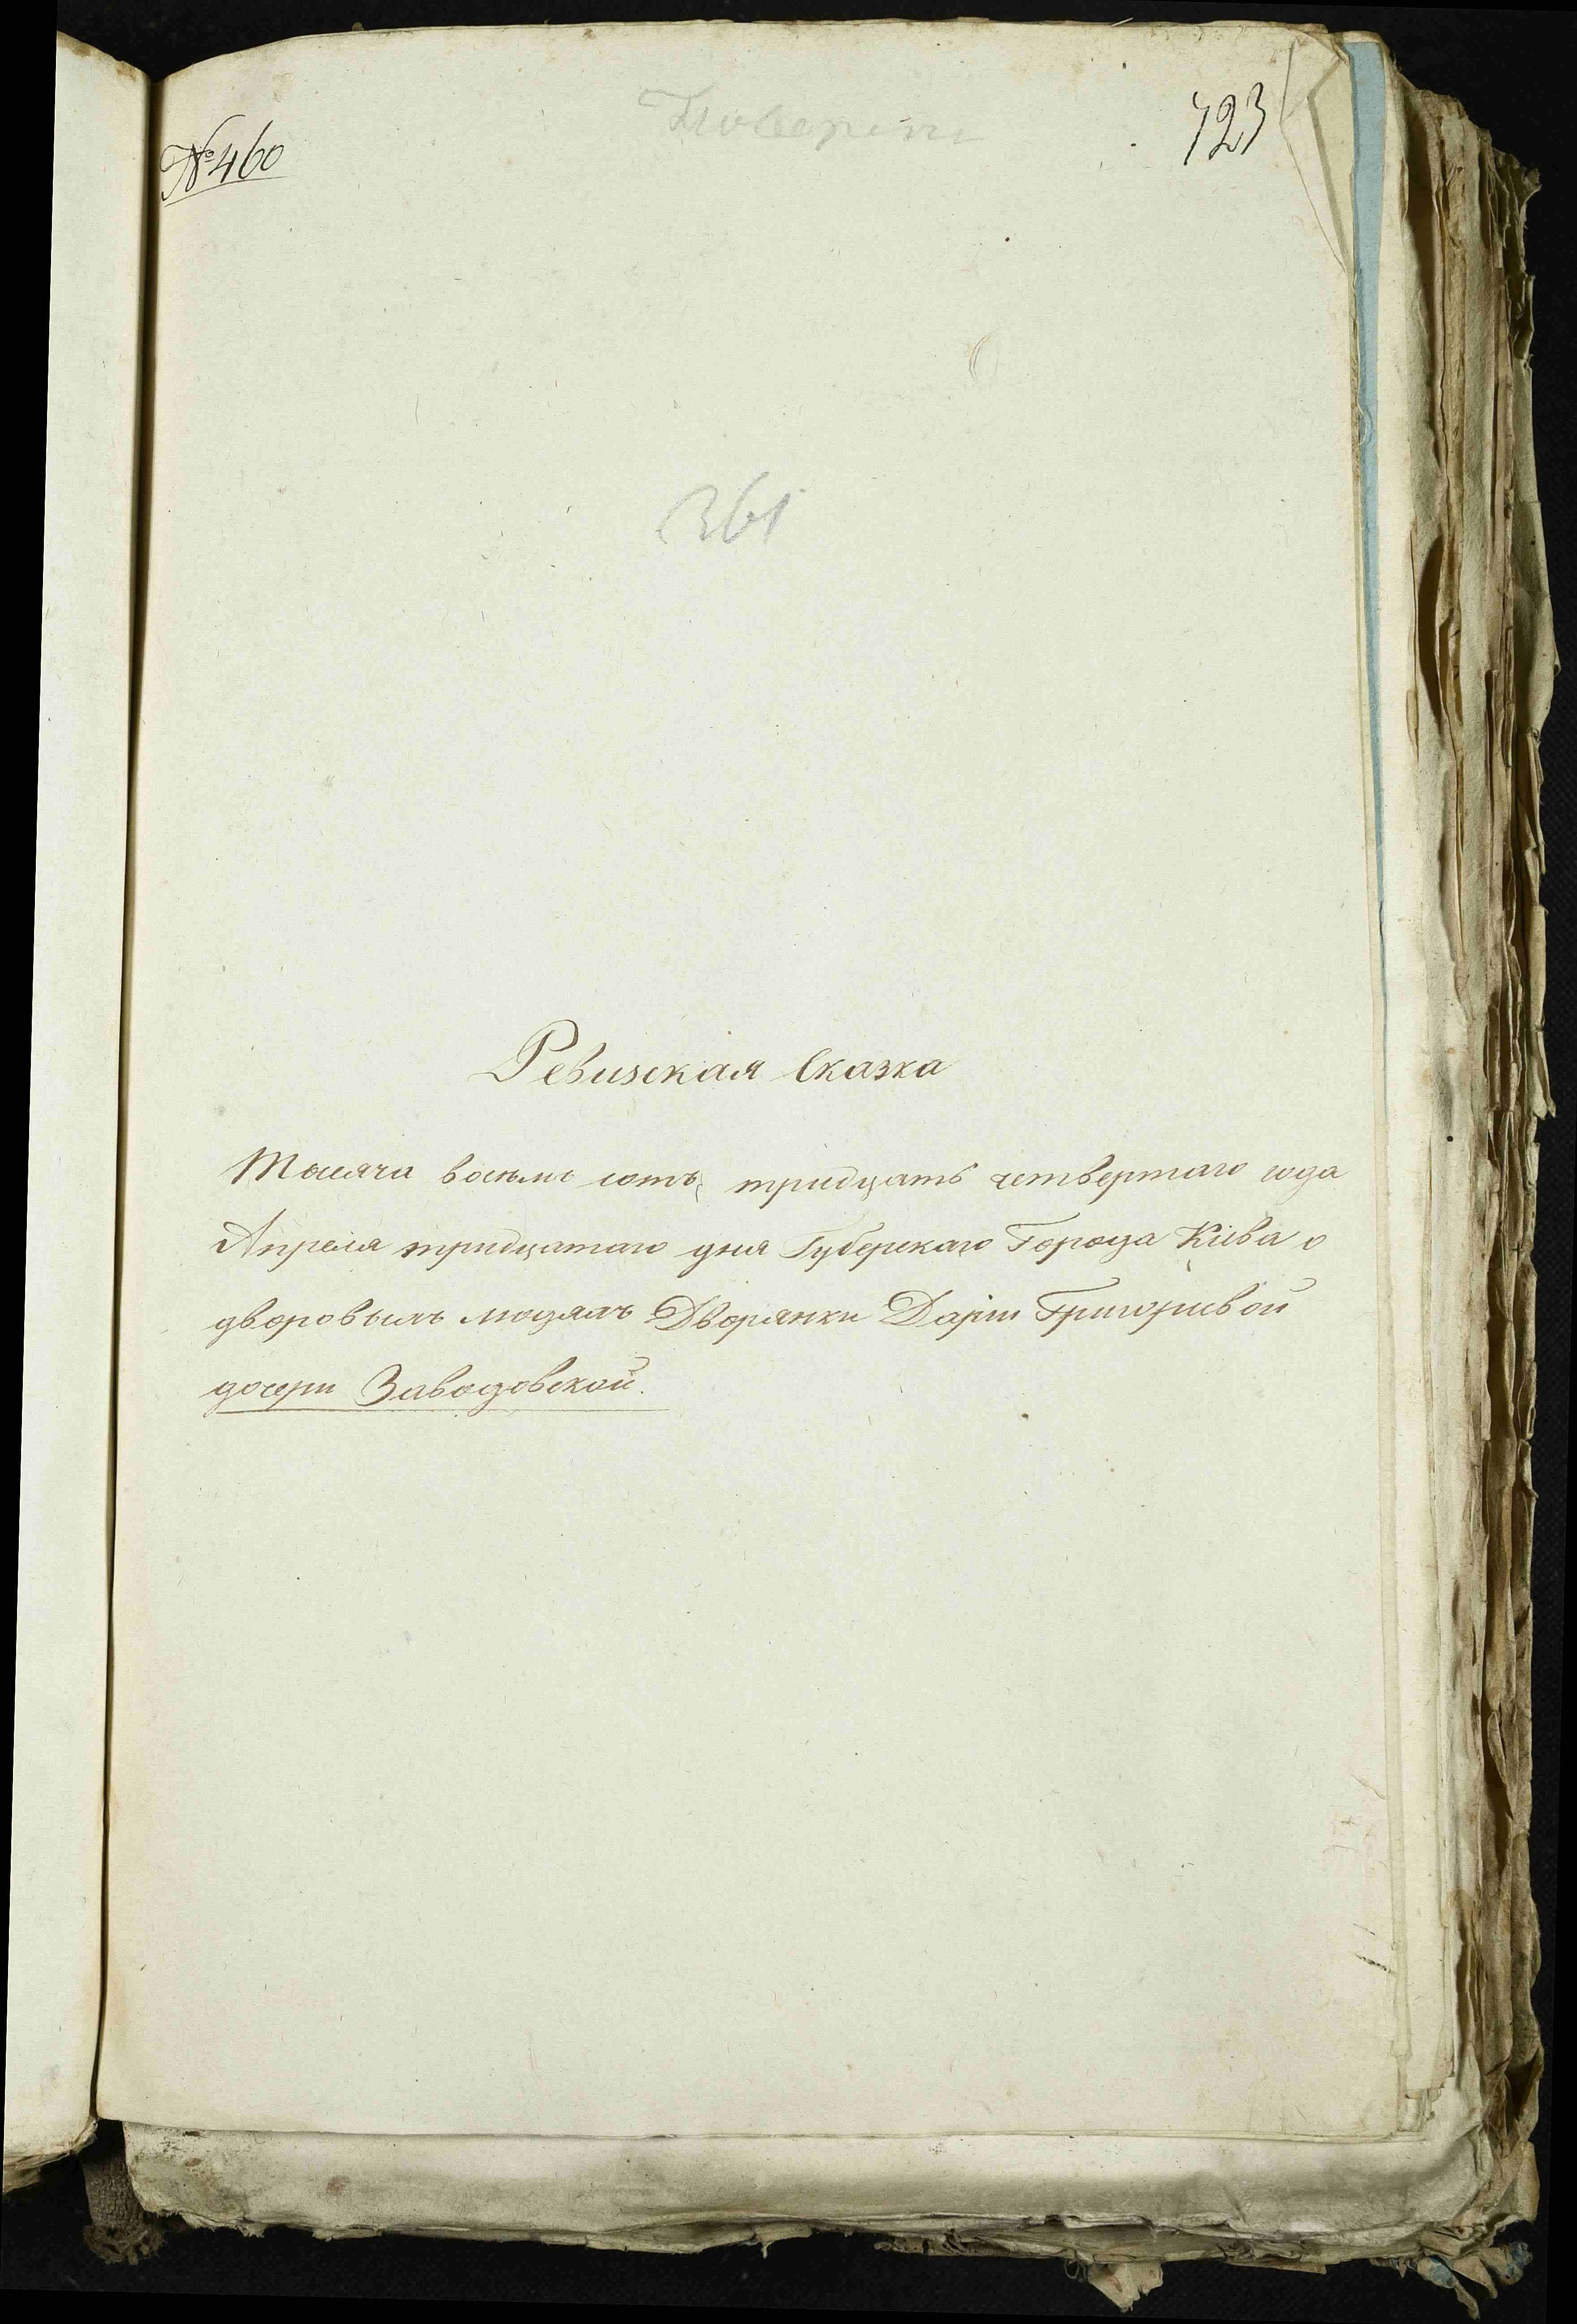 №460
723
361
Ревизская Сказка
Тысяча восемь сотъ, тридцать четвертаго года
Апреля тридцатаго дня Губерскаго Города Кіева о
дворовымъ людямъ Дворянки Даріи Григориевой
дочери Завадовской.